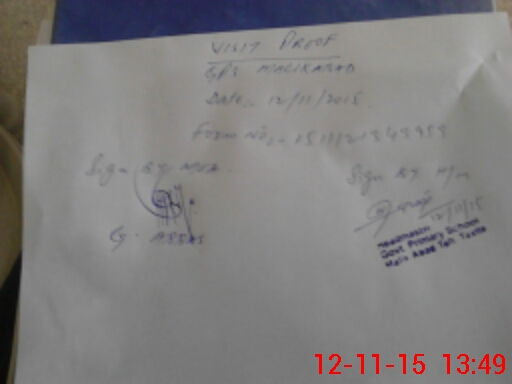 VISIT PROOF
GPS MALIKABAD
Date:- 12/11/2015.
Form No:-
Sign BY MEA. Sign BY H/m
12/11/15
G. ABBAS
Headmaster
Govt Primary School
Malik Abad Teh Taxila
12-11-15 13:49